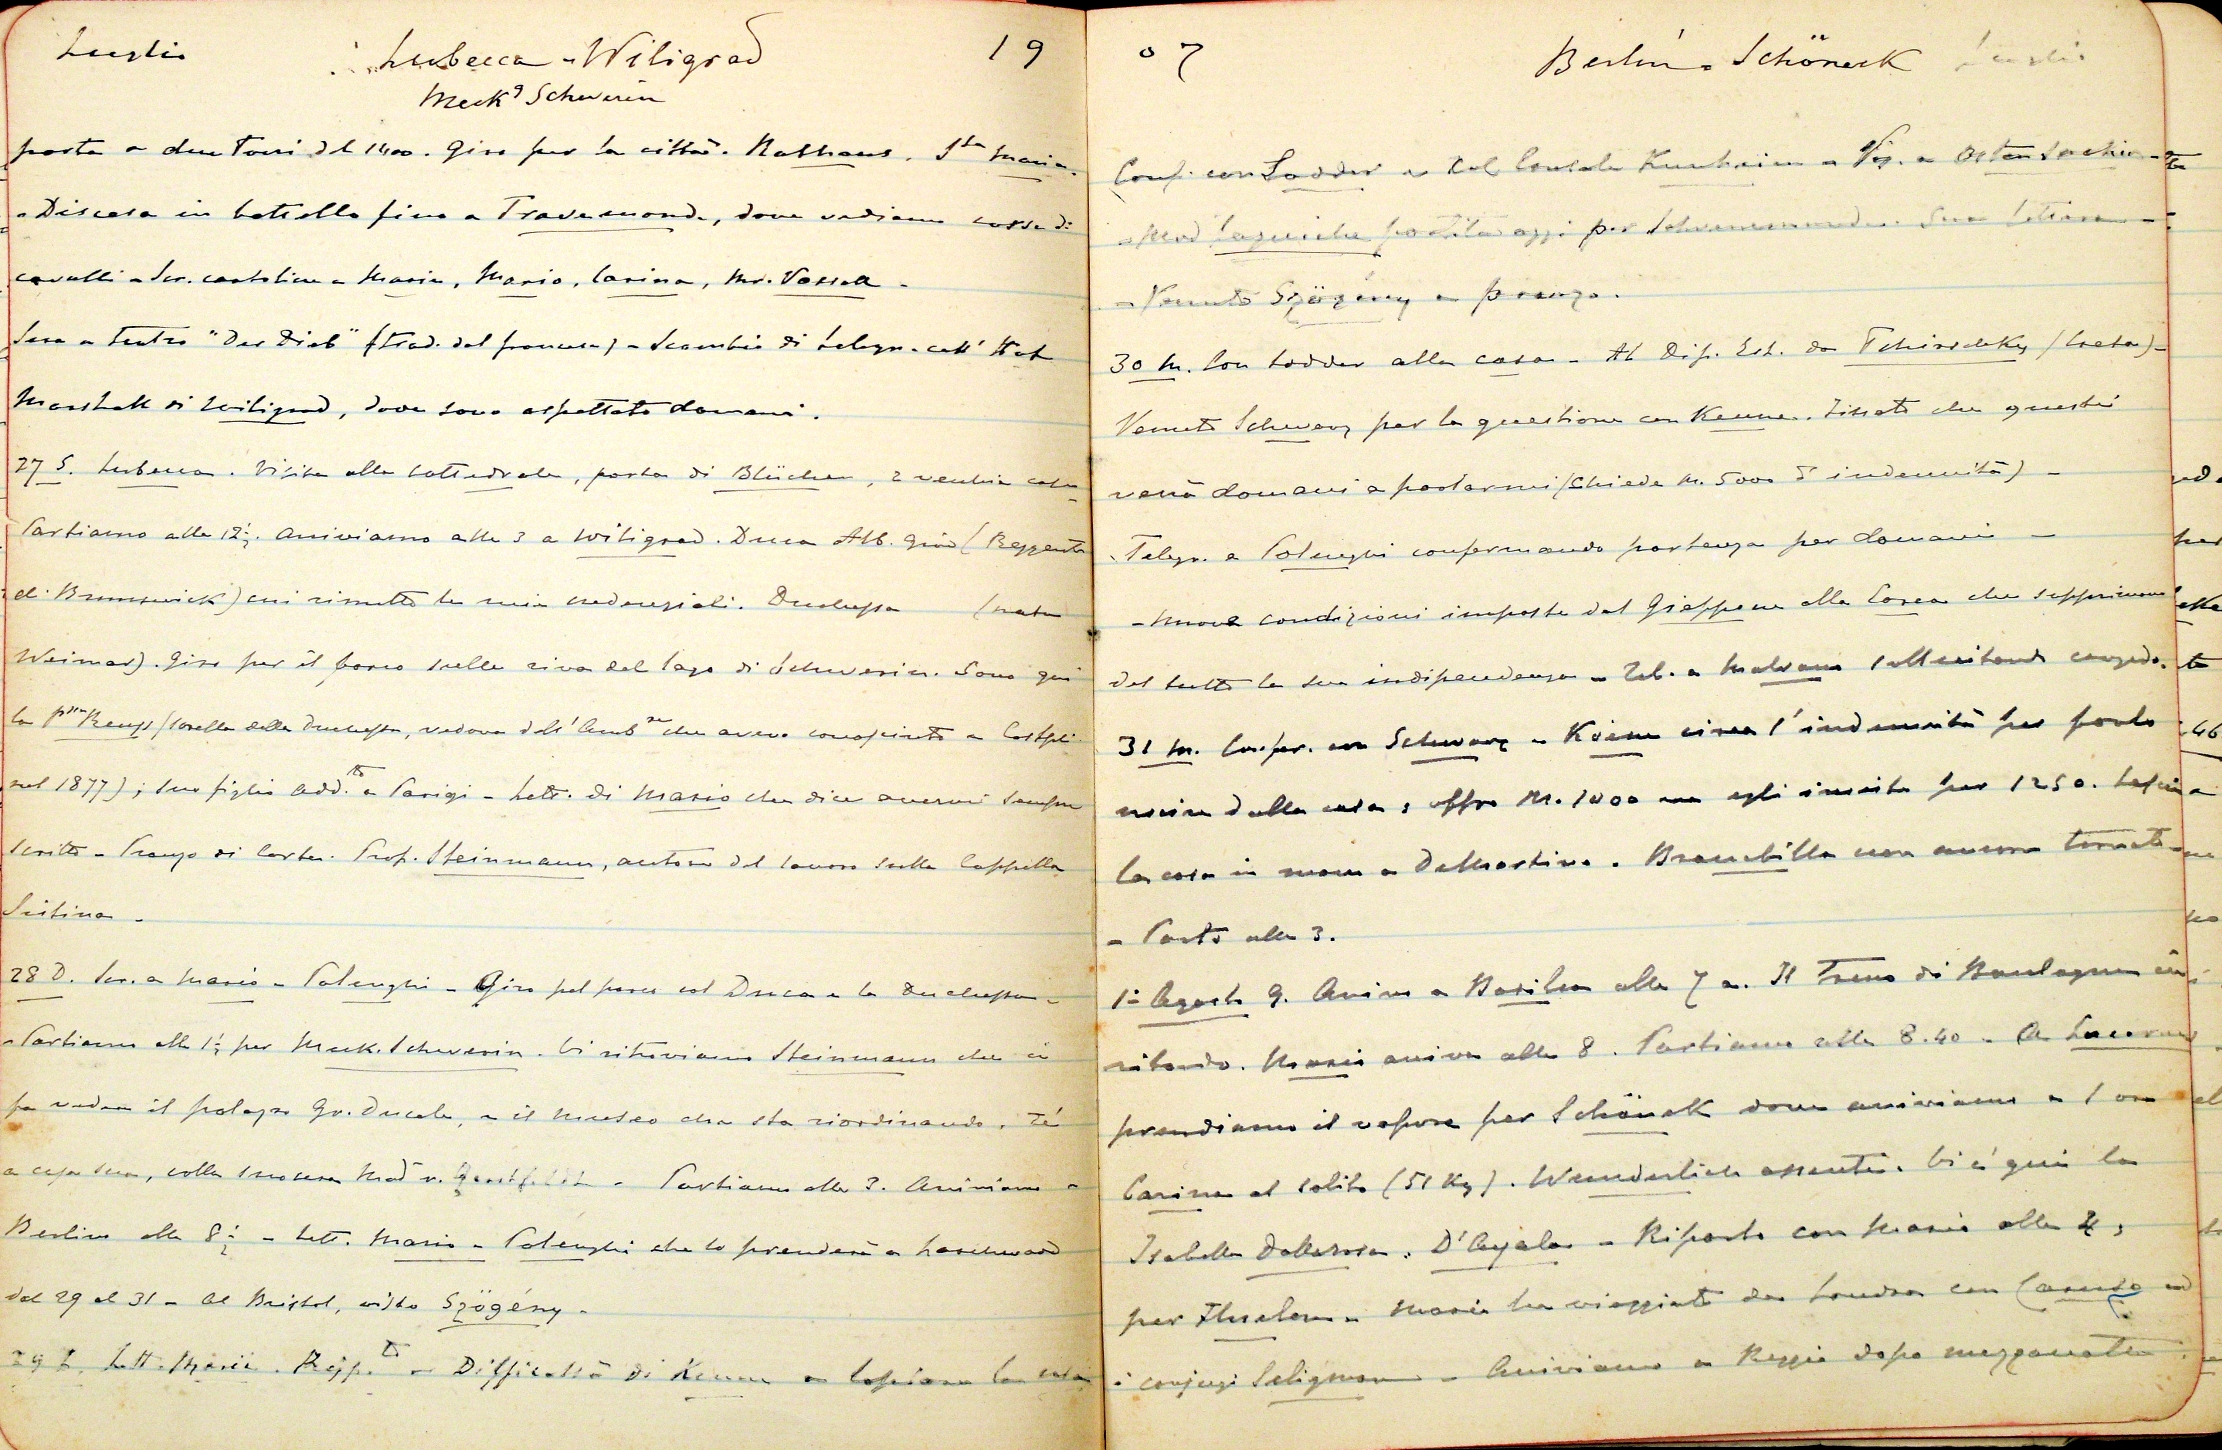 Luglio Lubecca - Wiligrad 19
Meckg Schwerin
porta a due Torri del 1400. Giro per la città. Rathaus. Sta Maria.
- Discesa in battello fino a Travemonde, dove vediamo corse di
cavalli - Scr. cartoline a Maria, Mario, Carina, Mr. Vassall -
Sera a teatro "Der Dieb" (trad. dal francese) - Scambio di telegr. coll' Hof
Marshall di Wiligrad, dove sono aspettato domani.
27 S. Lubecca. Visita alla Cattedrale, porta di Blücher, e vecchie case
Partiamo alle 12½. Arriviamo alle 3 a Wiligrad. Duca Alb. Giov (Reggente
di Brunswick) cui rimetto le mie credenziali. Duchessa (nata
Weimar). Giro per il parco sulla riva del lago di Schwerin. Sono qui
la Pssa Reuss (sorella della Duchessa, vedova dell' Ambre che avevo conosciuto a Costpli
nel 1877); suo figlio add.to a Parigi - Lett. di Mario che dice avermi sempre
scritto - Pranzo di Corte. Prof. Steinmann, autore del lavoro sulla Cappella
Sistina -
28 D. Scr. a Mario - Polenghi - Giro pel parco col Duca e la Duchessa -
- Partiamo alle 1½ per Meck. Schwerin. Ci ritroviamo Steinmann che ci
fa vedere il palazzo Gr. Ducale, e il museo che sta riordinando. Té
a casa sua, colla suocera Mad v. - Partiamo alle 3. Arriviamo a
Berlino alle 8½ - Lett. Mario - Polenghi che lo prenderà a
dal 29 al 31 - Al Bristol, visto Szögény -
29 L. Lett. Maria. Rapp.to - Difficoltà di Keune a lasciare la casa
07 Berlin - Schöneck Luglio
Conf. con Lodder e col Console Kunheim - Vis. a Osten Sacken -
- Mad partita oggi per Schwenemunde. Sua lettera -
- Venuto Szögény a pranzo.
30 M. Con Lodder alla casa - Al Dip. Est. da Tchirschky (Creta) -
Venuto Schwarz per la questione con Keune. Fissato che questi
verrà domani a parlarmi (Chiede M. 5000 d' indennità) -
- Telegr. a Polenghi confermando partenza per domani -
- Nuove condizioni imposte dal Giappone alla Corea che sopprimono
del tutto la sua indipendenza - Tel. a Malvano sollecitando congedo.
31 M. Confer. con Schwarz - Keune circa l' indennità per farlo
uscire dalla casa; offro M. 1000 ma egli insiste per 1250. Lascio
la cosa in mano a DeMartino. Brambilla non ancora tornato -
- Parto alle 3.
1° Agosto G. Arrivo a Basilea alle 7 a. Il treno di Boulogne in
ritardo. Maria arriva alle 8. Partiamo alle 8.40 - A Lucerna
prendiamo il vapore per Schöneck dove arriviamo a 1 ora
Carina al solito (51 Kg). Wunderlich assente. Ci è qui la
Isabella Dallarosa. D'Ayala - Riparto con Maria alle 4,
per Fluelen - Maria ha viaggiato da Londra con Caruso ed
i conjugi Seligman - Arriviamo a Reggio dopo mezzanotte.